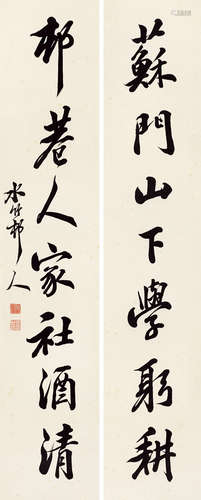 蘇門山下學躬耕
邨巷人家社酒清
水竹邨人